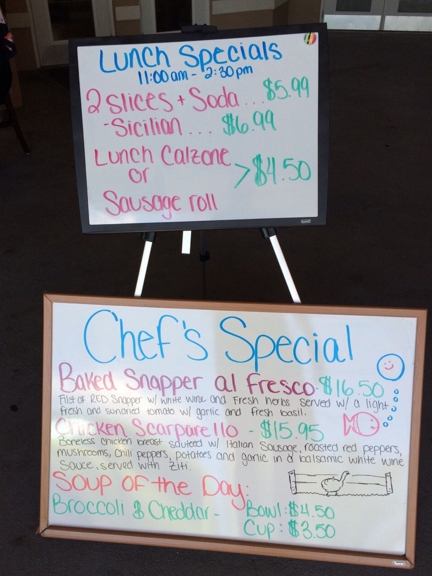 Lunch Specials
11:00am - 2:30pm
2 Slices + Soda ... $5.99
- Sicilian ... $6.99
Lunch Calzone
or > $4.50
Sausage roll
Chef's Special
Baked Snapper al fresco - $16.50
Filet of RED Snapper w/ white wine and Fresh herbs served w/ a light
fresh and sundried tomato w/ garlic and fresh basil.
Chicken Scarparello - $15.95
Boneless chicken breast sautéed w/ Italian Sausage, roasted red peppers,
mushrooms, chili peppers, potatoes and garlic in a balsamic white wine
Sauce, served with Ziti.
Soup of the Day:
Broccoli & Cheddar - Bowl: $4.50
Cup: $3.50